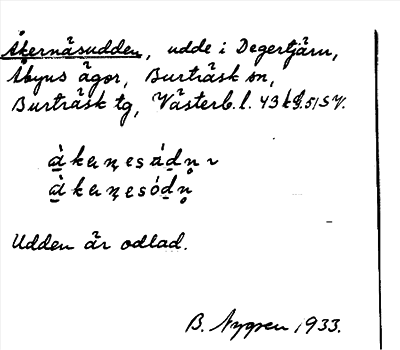 Åkernäsudden, udde i Degertjärn,
Åbyns ägor, Burträsk sn,
Burträsk tg, Västerb. l. 43 SV.
å̀kernesúdn ~
å̀kernesódn̥
Udden är odlad.
B. Nygren 1933.